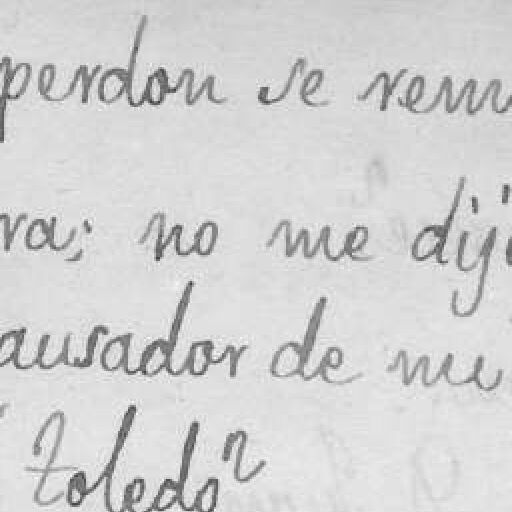 perdon se rem
ra; no me dij
ausador de mi
Toledo